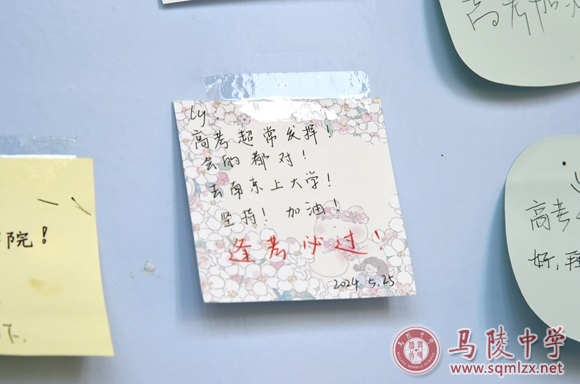 高考加
ly:
高考超常发挥!
会的都对!
去南京上大学!
坚持!加油!
逢考必过!
2024.5.25
院!
下.
高考
好,
马陵中学
www.sqmlzx.net